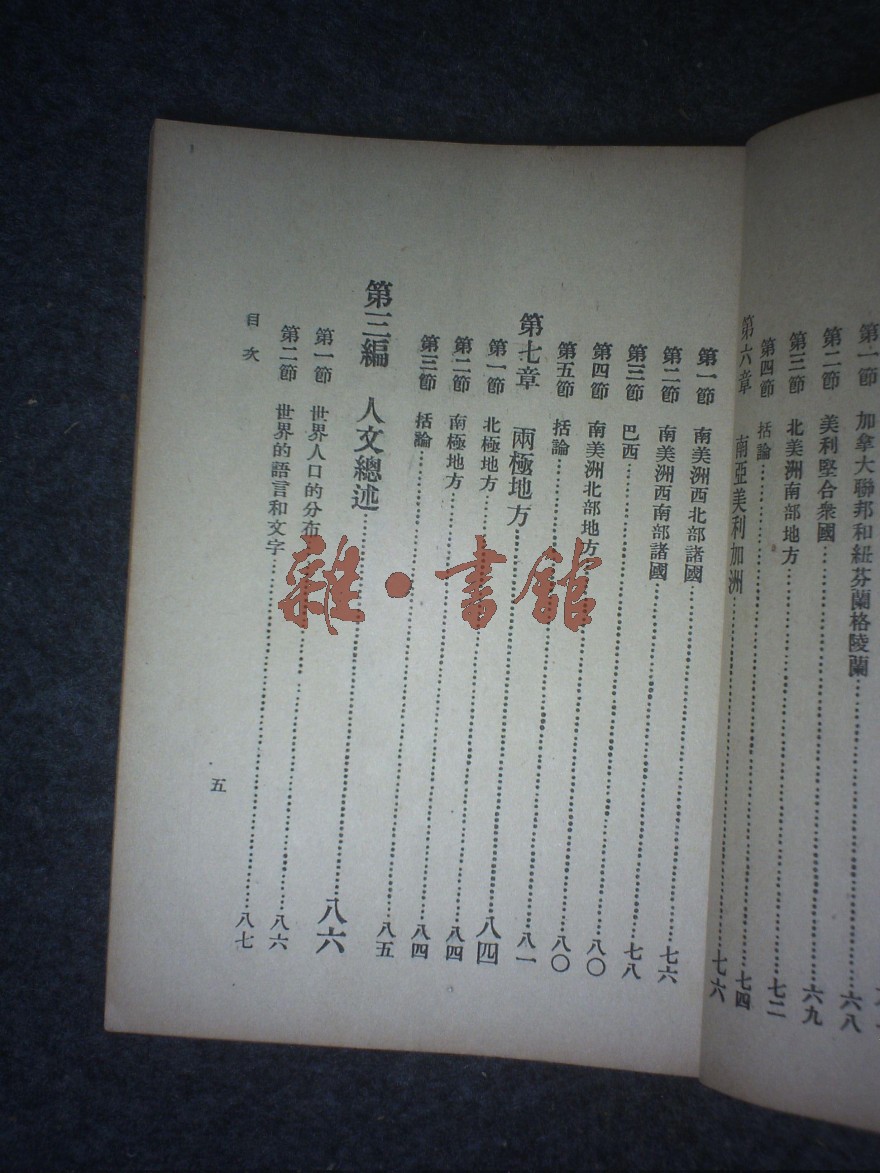 第一節 加拿大聯邦和紐芬蘭格陵蘭……六八
第二節 美利堅合衆國……六九
第三節 北美洲南部地方……七二
第四節 括論……七四
第六章 南亞美利加洲……七六
第一節 南美洲西北部諸國……七六
第二節 南美洲西南部諸國……七八
第三節 巴西……八〇
第四節 南美洲北部地方……八〇
第五節 括論……八一
第七章 兩極地方……八四
第一節 北極地方……八四
第二節 南極地方……八四
第三節 括論……八五
第三編 人文總述……八六
第一節 世界人口的分布……八六
第二節 世界的語言和文字……八七
目次
五
雜·書館